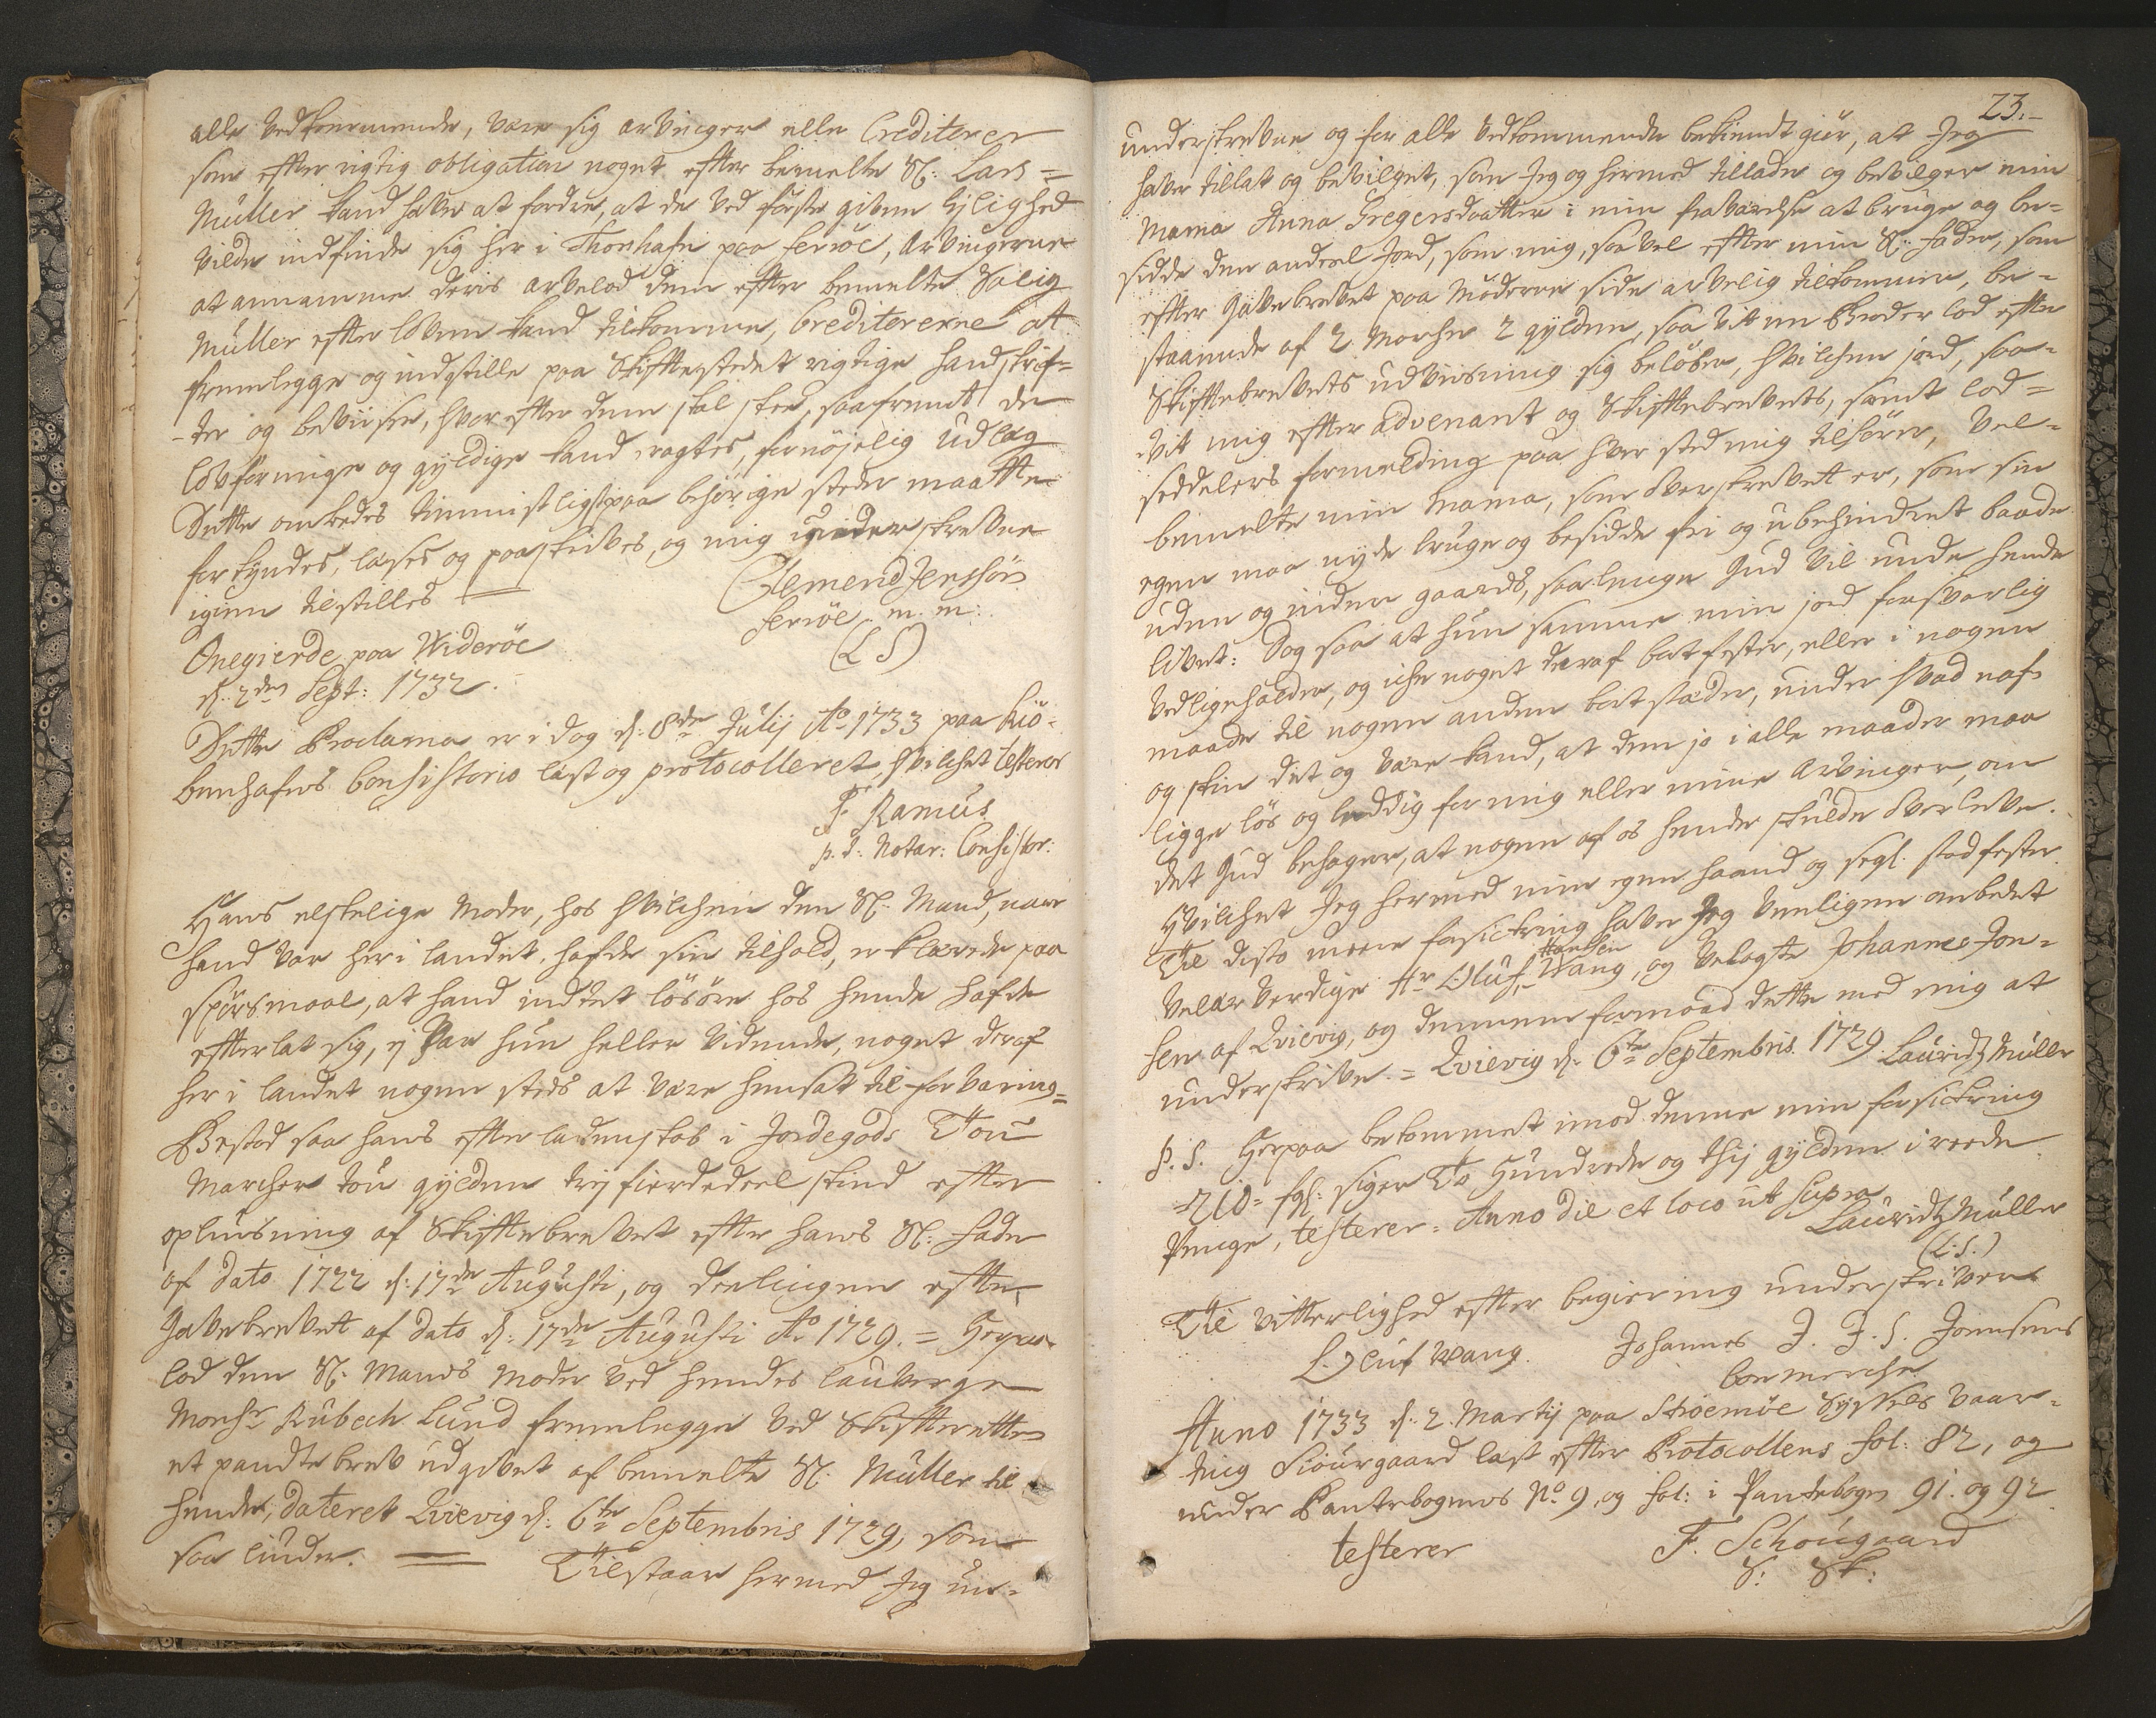 alle Vedkommende, være sig arvinger elle Creditorer
som efter rigtig obligation noget efter bemelte Sl: Lars =
Müller kand have at fordre, at de ved første given lejlighed
vilde indfinde sig her i Thorshafn paa Ferröe, Arvingerne
at annamme deris arvelod dem efter bemelte Salig
Müller efter loven kand tilkomme, Creditererne at
fremlegge og indstille paa Skiftestedet rigtige handskrif=
-ter og beviiser, hvor efter dem skal skee, saafremt de
lovformige og gyldige kand ragtes, fornøjelig udlæg
Dette ombedes tiennistligst paa behörige steder maatte
forkyndes, læses og paaskrives, og mig underskrevne
igien tilstilles
Clemend Jenssön
Ferröe m. m:
(L S)
Onegierde paa Wideröe
d: 2den Sept: 1732.
Dette Proclama er i dag d: 8de Julij Ao 1733 paa Kiö=
benhafns Consistorio læst og protocolleret, hvilchet testerer
F. Ramus
p. t: Notar: Consistor:
Hans elskelige Moder, hos hvilchen den Sl. Mand, naar
hand var her i landet, hafde sin tilhold, erklærede paa
spörsmaal, at hand indtet lösöre hos hende hafde
efterlat sig, ej var hun heller vidende, noget deraf
her i landet nogen steds at være hensatt til forvaring=
Bestod saa hans efterladenskab i Jordegods Tou
Marcher tou gylden trij fierdedeel skind efter
opliusning af Skiftebrevet efter hans Sl: Fader
af dato 1722 d: 17de Augusti, og deelingen efter
Gavebrevet af dato d: 17de Augusti Ao 1729. = Herpaa
lod den Sl: Mands Moder ved hendes lauverge
Monsr Rubech Lund fremlegge ved Skifteretten
et pandtebrev udgivet af bemelte Sl: Müller til
hende, dateret Qvievig d: 6te Septembris 1729, som
saa liuder. Tilstaar hermed Jeg un=
23.
underskrevne og for alle vedkommende bekiendtgiör, at Jeg
haver tillat og bevilget, som Jeg og hermed tillader og bevilger min
Mama Anna Gregersdaatter i min fraværelse at bruge og be=
sidde den andeel Jord, som mig, saavel efter min Sl: Fader, som
efter Gavebrevet paa Möderne side arvelig tilkommer, be=
staaende af 2 Marcher 2 gylden, saavit en Broder lod efter
Skiftebrevets udvisning sig beløber, hvilchen jord, saa=
vit mig efter advenant og Skiftebrevets, samt lod=
seddelers formelding paa hver sted mig tilhører, vel=
bemelte min Mama, som overskrevett er, som sin
egen maa nyde bruge og besidde fri og ubehindret baade
uden og inden gaards, saalenge Gud vil unde hende
livet: Dog saa at hun samme min jord forsvarlig
vedligeholder, og iche noget deraf bortfester, eller i nogen
maade til nogen anden bortstæder, under hvad naf
og skin det og være kand, at den jo i alle maader maa
ligge lös og leddig for mig eller mine Arvinger, om
det Gud behager, at nogen af os hende skulde overleve.
Hvilchet Jeg hermed min egen haand og segl. stadfester.
Til disto meere forsickring haver Jeg venligen ombedet
Velærverdige Hr Oluf Hansen Wang, og Velagte Johannes Jon=
sen af Qvievig, og dennem formoed dette med mig at
underskrive. = Qvievig d: 6te Septembris 1729 Lauridtz Müller
P. S. Herpaa bekommet imod denne min forsickring
=210= sgl: siger To Hundrede og thij gylden i reede
Penge, testerer = Anno die et loco ut supra
Lauridtz Müller
(L: S.)
Til vitterlighed efter begiering underskriver
Oluf Wang. Johannes J. J. S. Joensens
boemerche
Anno 1733 d: 2. Martij paa Strøemøe Syssels Vaar=
ting Siøurgaard læst efter Protocollens fol: 82, og
under Pantebogens No 9, og fol: i Pantebogen 91. og 92
testerer F. Schougaard
S: Sk: